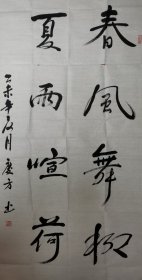 春風舞柳
夏雨喧荷
乙未年夏月 慶方 书